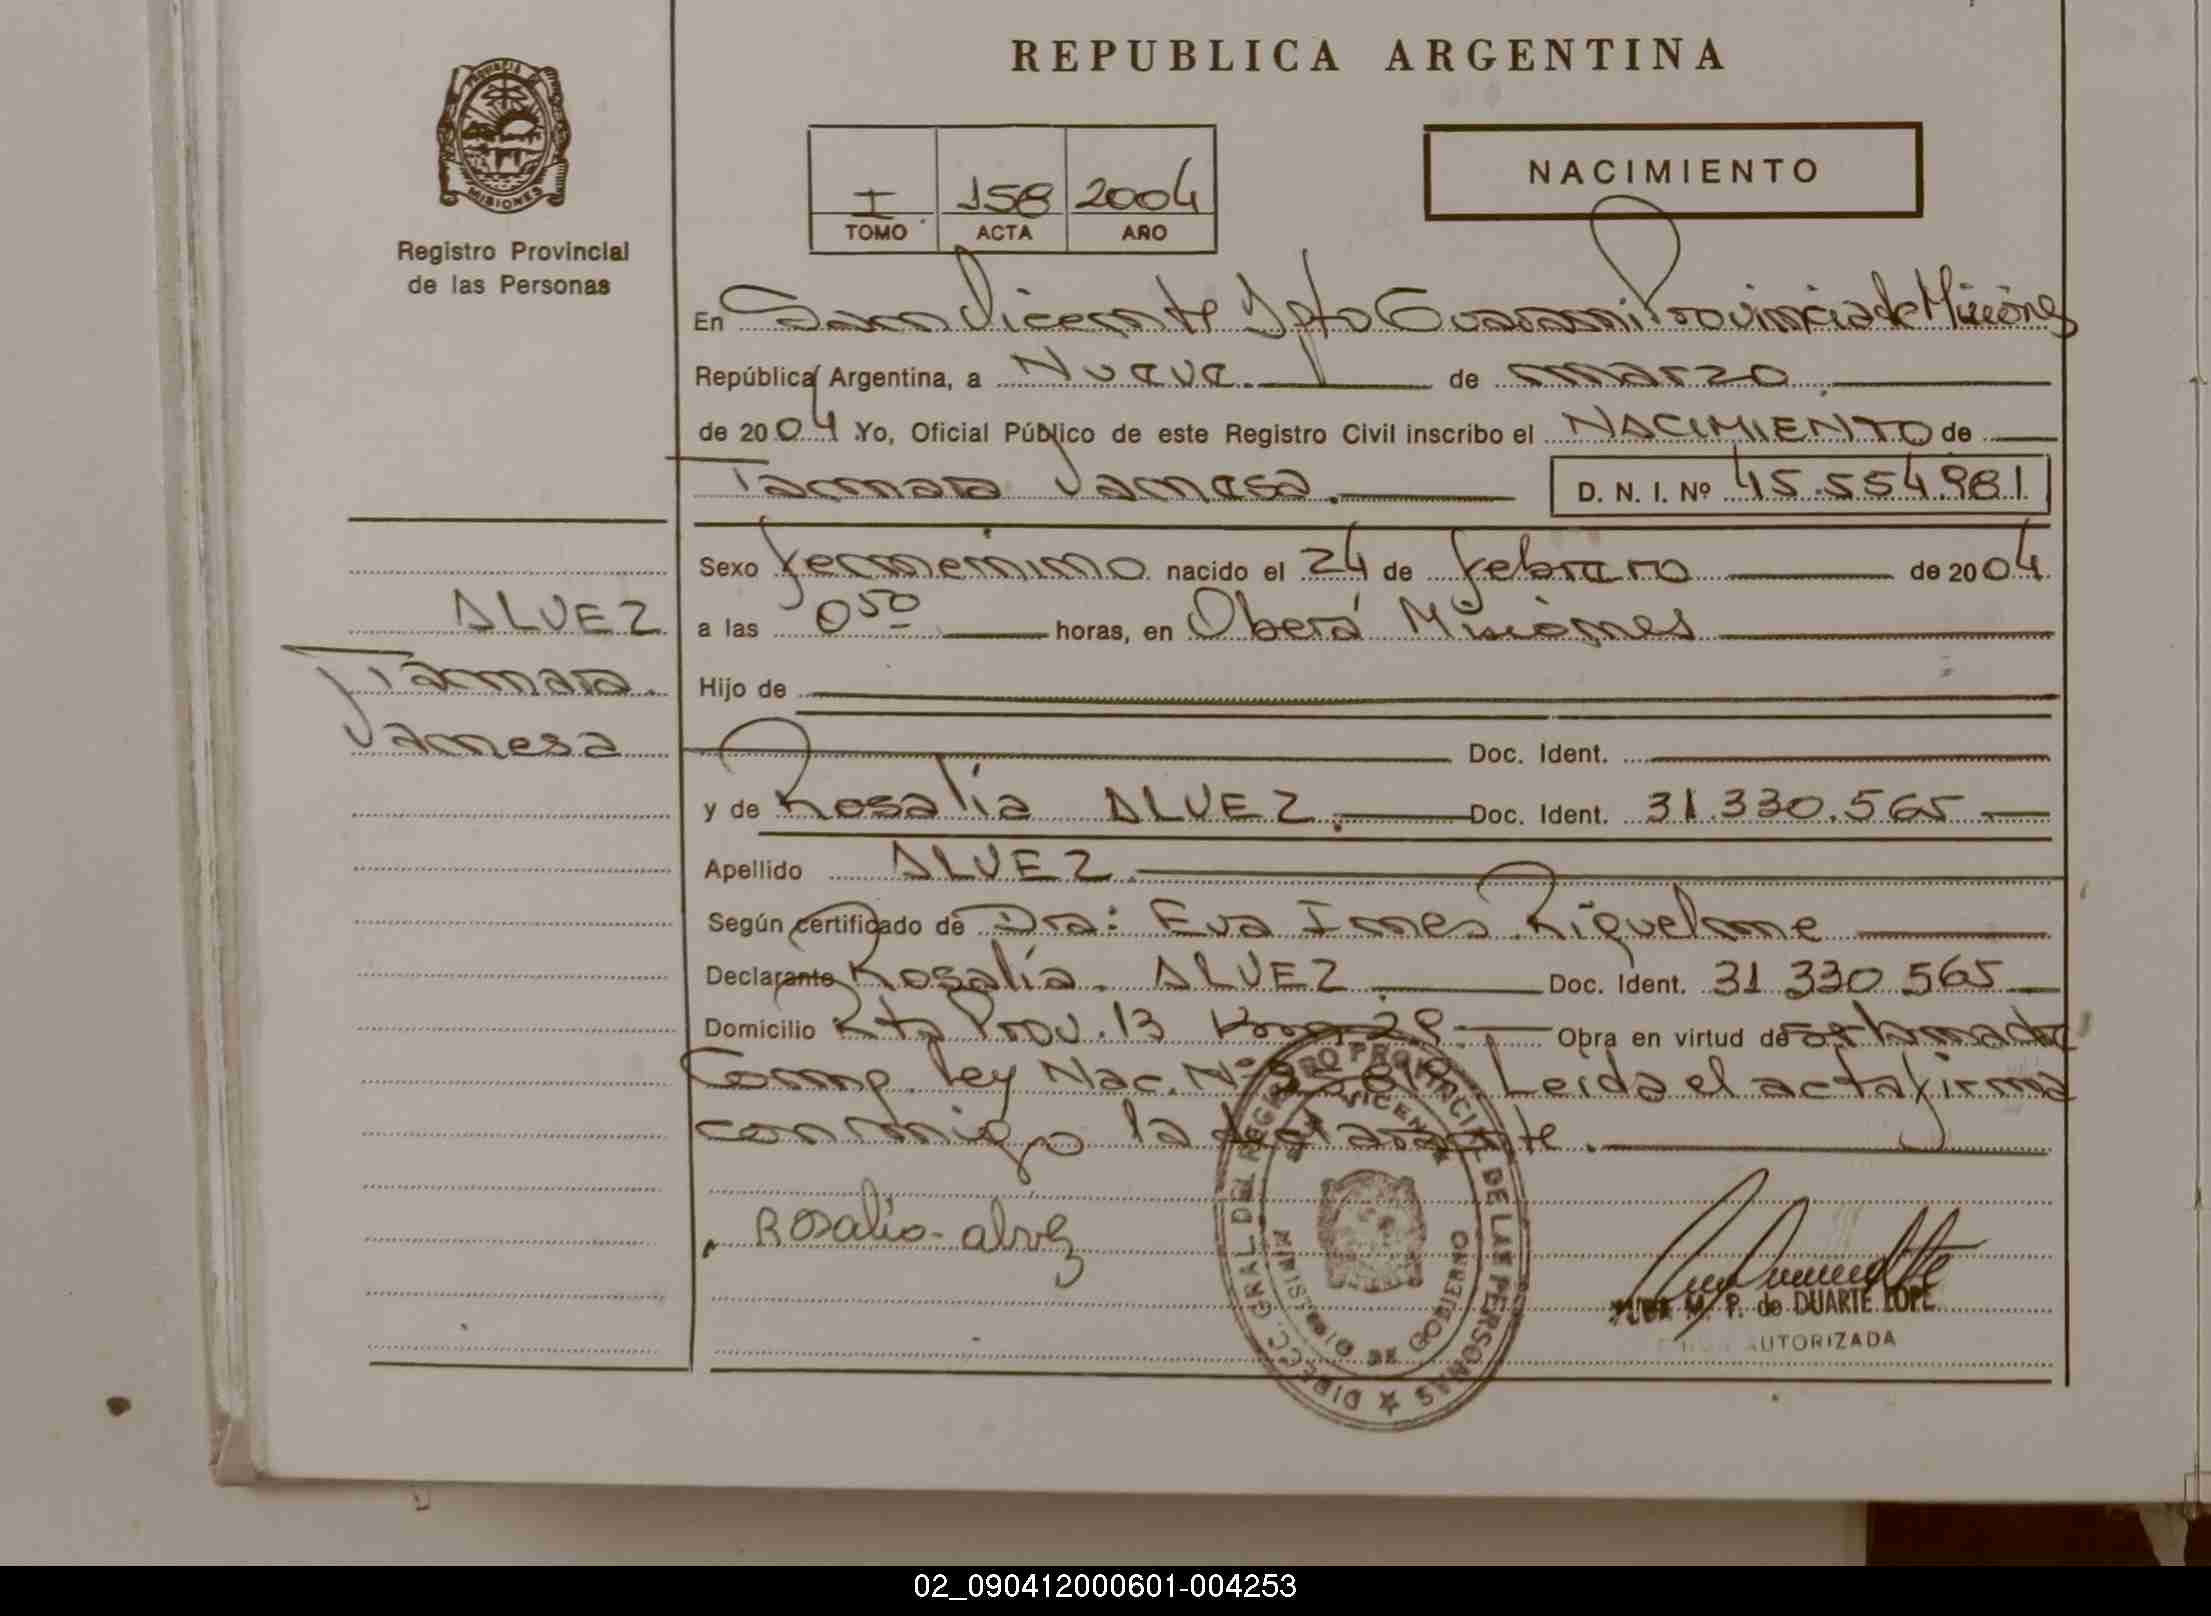 REPUBLICA ARGENTINA
MISIONES
Registro Provincial
de las Personas
I 158 2004
TOMO ACTA AÑO
NACIMIENTO
En San Vicente Dpto Guaraní Provincia de Misiones
República Argentina, a Nueve de marzo
de 2004 Yo, Oficial Público de este Registro Civil inscribo el NACIMIENTO de
Tamara Vanesa. D. N. I. Nº 45.554.981
Sexo femenino nacido el 24 de febrero de 2004
ALVEZ
a las 0 50 horas, en Oberá Misiones
Tamara
Hijo de
Vanesa
Doc. Ident.
y de Rosalía ALVEZ. Doc. Ident. 31.330.565
Apellido ALVEZ.
Según certificado de Dra: Eva Ines Riquelme
Declarante Rosalía ALVEZ Doc. Ident. 31 330 565
Domicilio Rta Prov. 13 Km 29. Obra en virtud de
Comp. Ley Nac. Nº Leida el acta firma
conmigo la declarante.
Rosalia alvez
DIRECC. GRAL DEL REGISTRO PROVINCIAL DE LAS PERSONAS
SAN VICENTE
MINISTERIO DE GOBIERNO
M. P. de DUARTE LOPE
AUTORIZADA
02_090412000601-004253